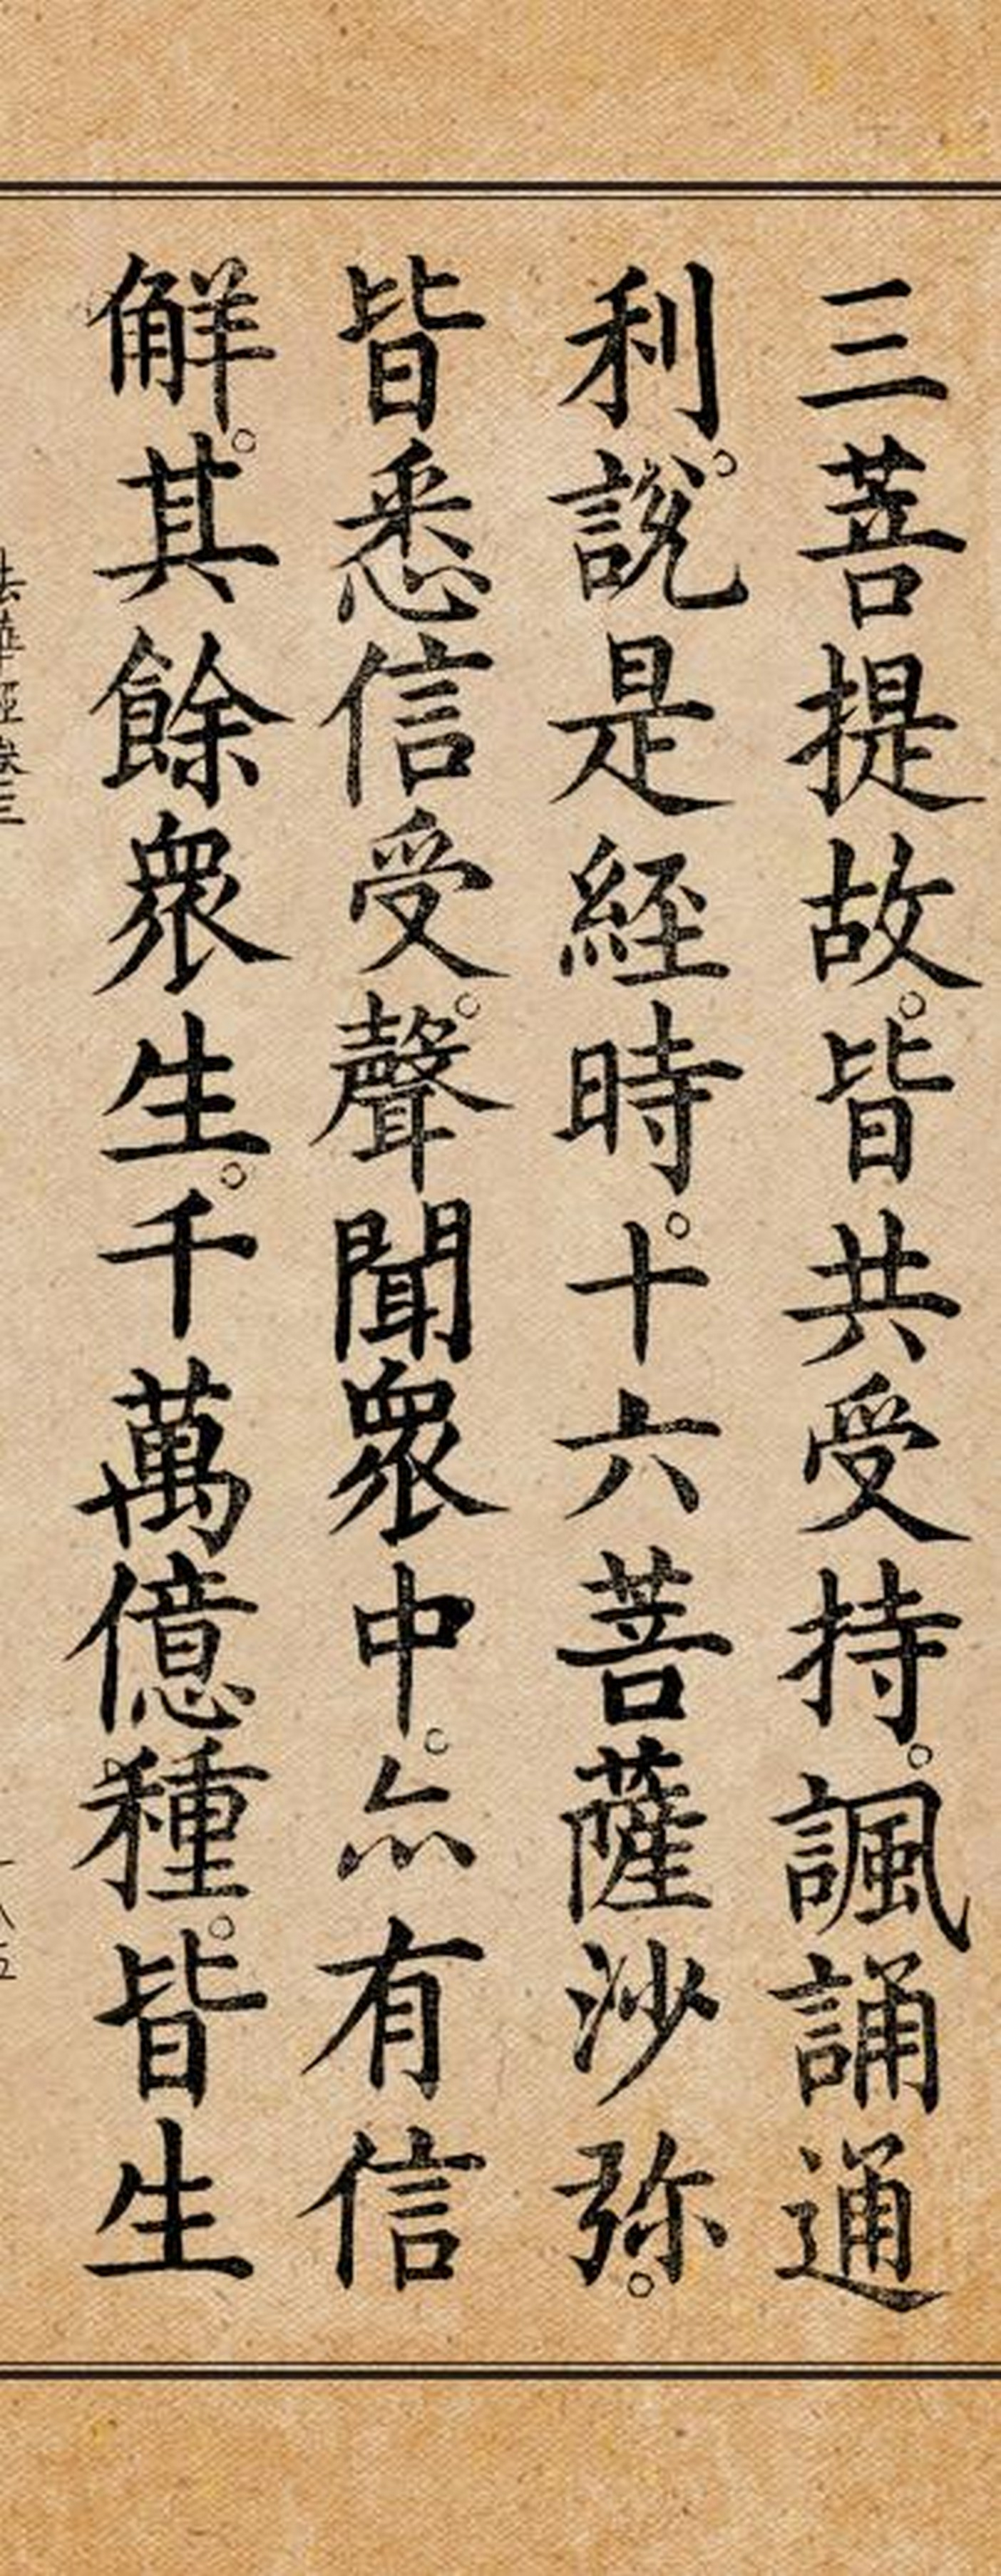 三菩提故。皆共受持。諷誦通
利。說是經時。十六菩薩沙弥。
皆悉信受。聲聞衆中。亦有信
解。其餘衆生。千萬億種。皆生
法華經卷三